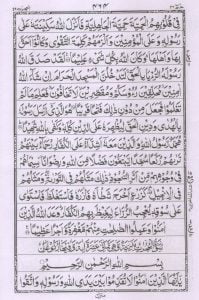 ۴۶۴
فِیْ قُلُوْبِهِمُ الْحَمِیَّةَ حَمِیَّةَ الْجَاهِلِیَّةِ فَاَنْزَلَ اللّٰهُ سَكِیْنَتَهٗ عَلٰی
رَسُوْلِهٖ وَعَلَی الْمُؤْمِنِیْنَ وَاَلْزَمَهُمْ كَلِمَةَ التَّقْوٰی وَكَانُوْۤا اَحَقَّ
بِهَا وَاَهْلَهَا وَكَانَ اللّٰهُ بِكُلِّ شَیْءٍ عَلِیْمًا لَقَدْ صَدَقَ اللّٰهُ
رَسُوْلَهُ الرُّءْیَا بِالْحَقِّ لَتَدْخُلُنَّ الْمَسْجِدَ الْحَرَامَ اِنْ شَآءَ اللّٰهُ
اٰمِنِیْنَ مُحَلِّقِیْنَ رُءُوْسَكُمْ وَمُقَصِّرِیْنَ لَا تَخَافُوْنَ فَعَلِمَ مَا لَمْ
تَعْلَمُوْا فَجَعَلَ مِنْ دُوْنِ ذٰلِكَ فَتْحًا قَرِیْبًا هُوَ الَّذِیْۤ اَرْسَلَ رَسُوْلَهٗ
بِالْهُدٰی وَدِیْنِ الْحَقِّ لِیُظْهِرَهٗ عَلَی الدِّیْنِ كُلِّهٖ وَكَفٰی بِاللّٰهِ شَهِیْدًا
مُحَمَّدٌ رَّسُوْلُ اللّٰهِ وَالَّذِیْنَ مَعَهٗۤ اَشِدَّآءُ عَلَی الْكُفَّارِ رُحَمَآءُ بَیْنَهُمْ
تَرٰىهُمْ رُكَّعًا سُجَّدًا یَّبْتَغُوْنَ فَضْلًا مِّنَ اللّٰهِ وَرِضْوَانًا سِیْمَاهُمْ
فِیْ وُجُوْهِهِمْ مِّنْ اَثَرِ السُّجُوْدِ ذٰلِكَ مَثَلُهُمْ فِی التَّوْرٰىةِ وَمَثَلُهُمْ
فِی الْاِنْجِیْلِ كَزَرْعٍ اَخْرَجَ شَطْـَٔهٗ فَاٰزَرَهٗ فَاسْتَغْلَظَ فَاسْتَوٰی
عَلٰی سُوْقِهٖ یُعْجِبُ الزُّرَّاعَ لِیَغِیْظَ بِهِمُ الْكُفَّارَ وَعَدَ اللّٰهُ الَّذِیْنَ
اٰمَنُوْا وَعَمِلُوا الصّٰلِحٰتِ مِنْهُمْ مَّغْفِرَةً وَّاَجْرًا عَظِیْمًا
بِسْمِ اللّٰهِ الرَّحْمٰنِ الرَّحِیْمِ
یٰۤاَیُّهَا الَّذِیْنَ اٰمَنُوْا لَا تُقَدِّمُوْا بَیْنَ یَدَیِ اللّٰهِ وَرَسُوْلِهٖ وَاتَّقُوا